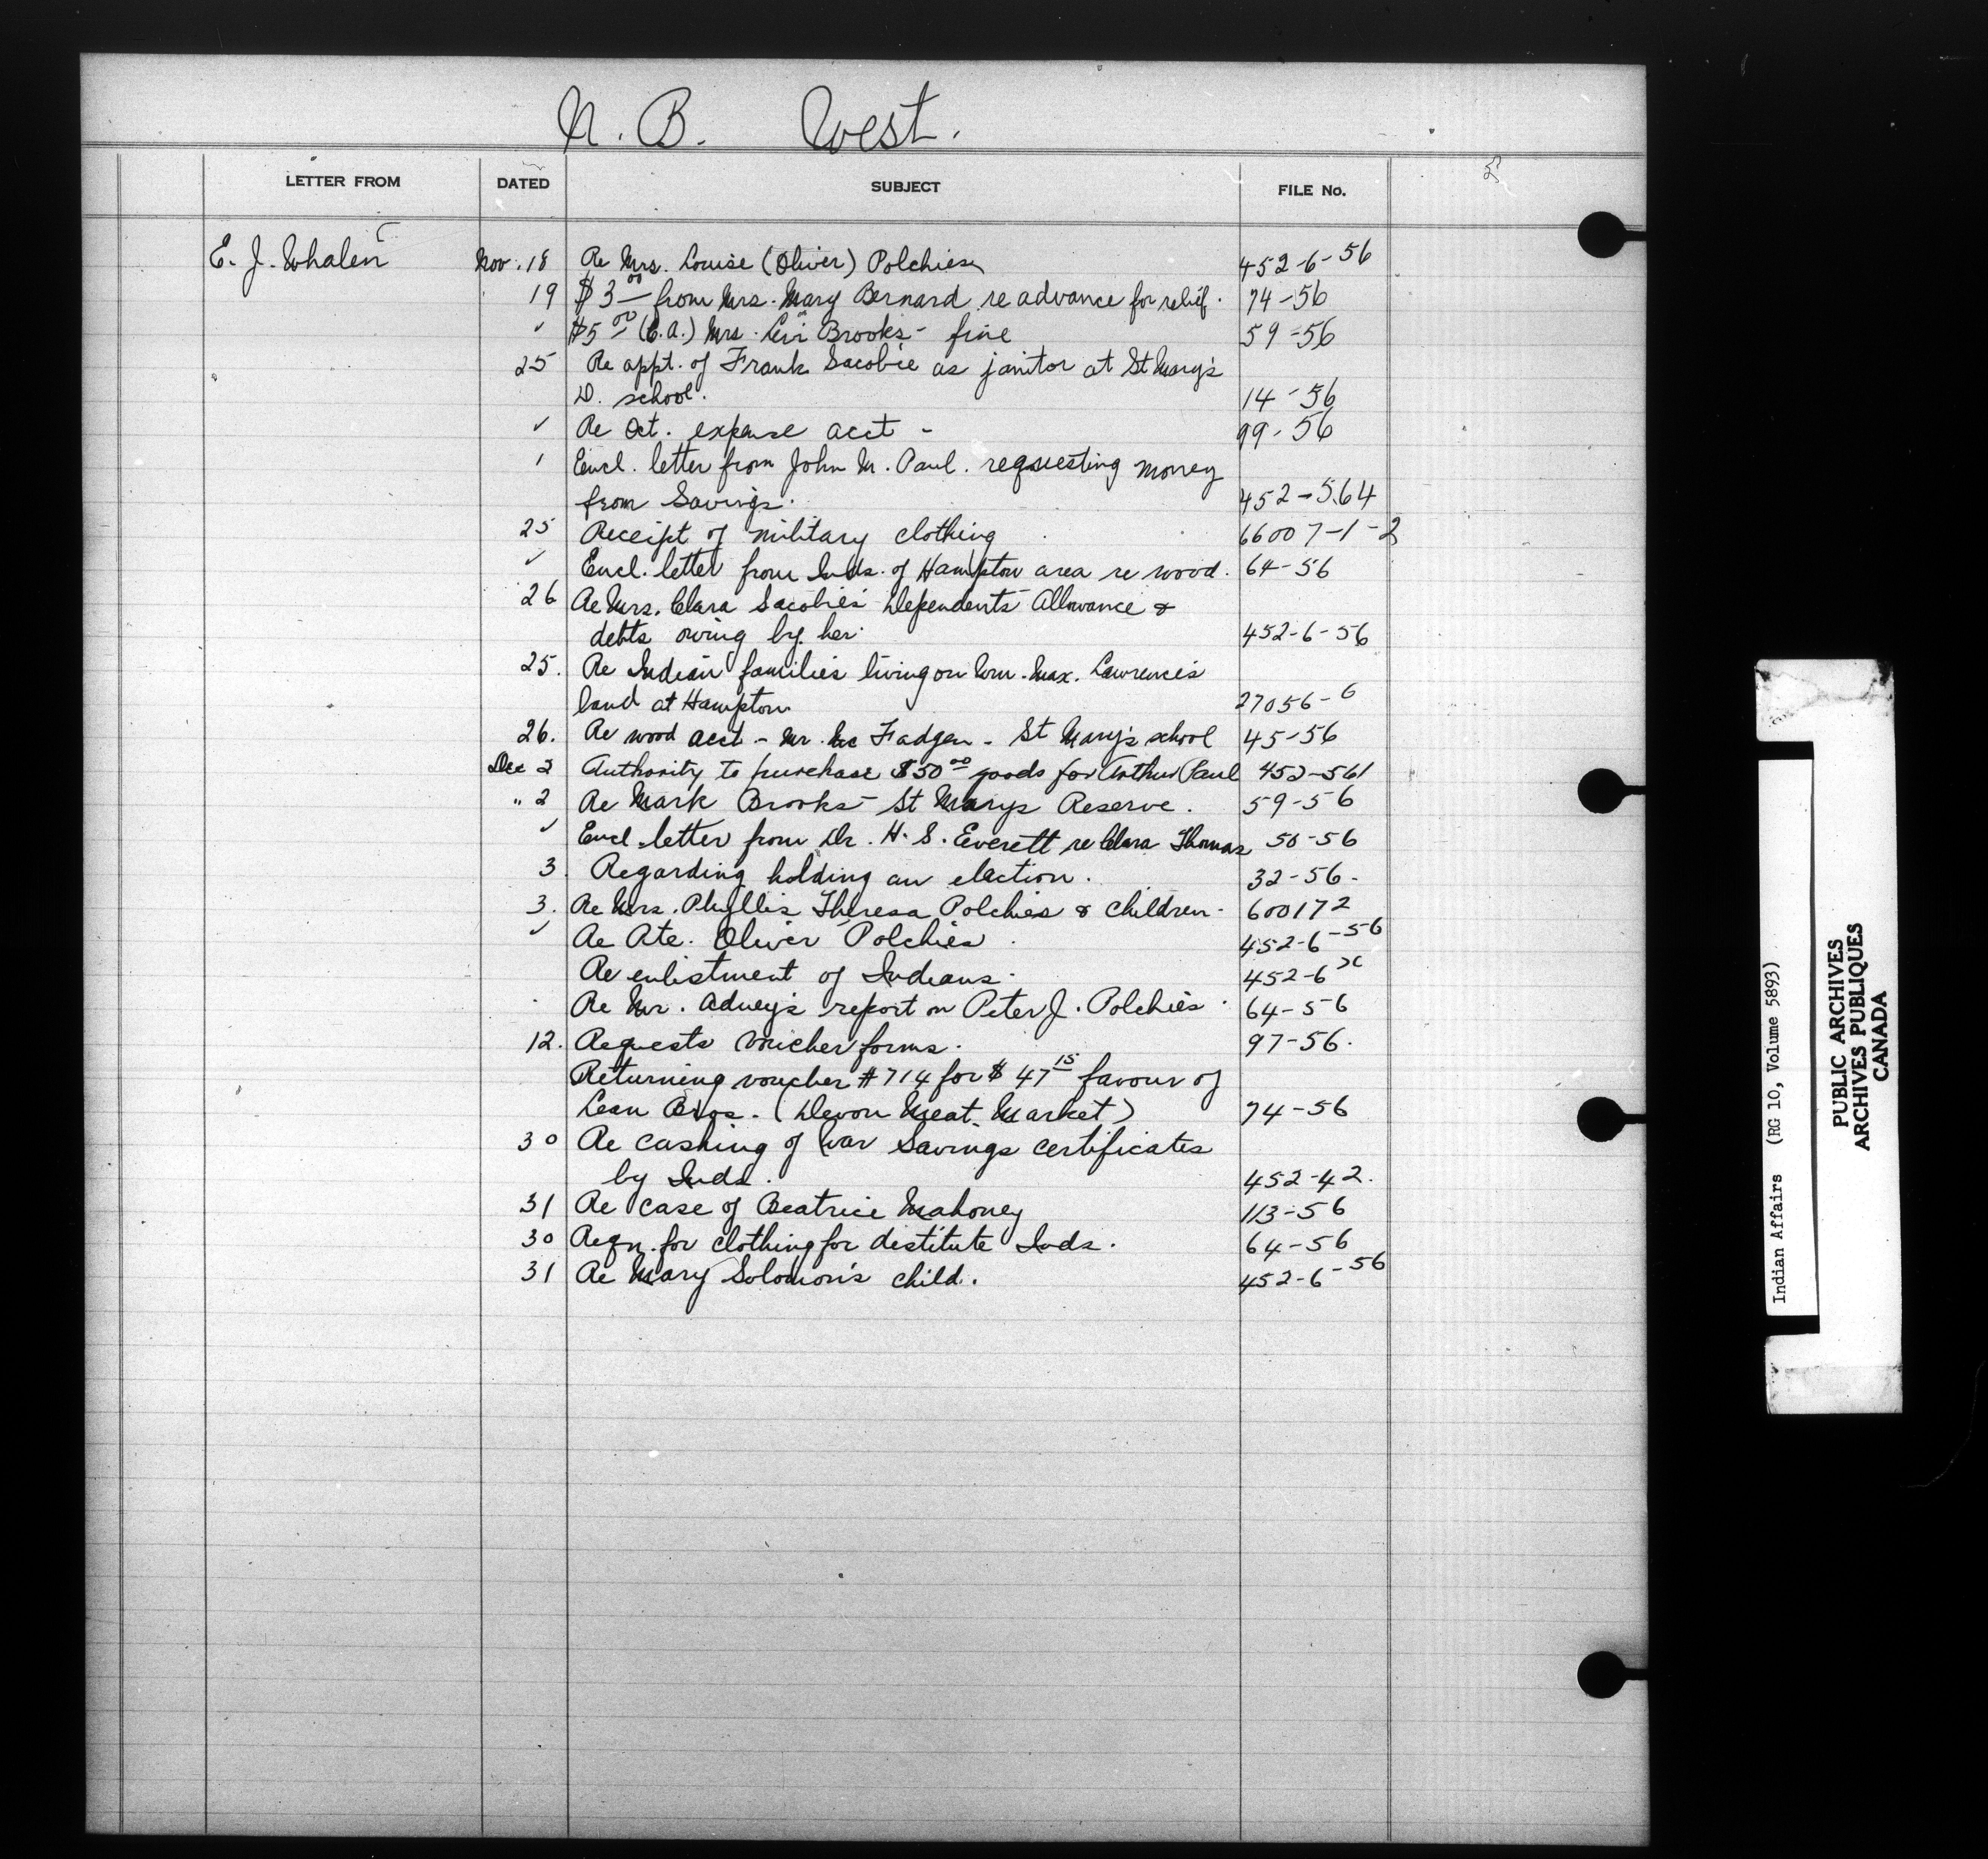 N. B. West.
LETTER FROM DATED SUBJECT FILE No.
E. J. Whalen Nov. 18 Re Mrs. Louise (Oliver) Polchies 452-6-56
19 $3.00 from Mrs. Mary Bernard re advance for relief. 74-56
✓ $5.00 (C.A.) Mrs. Levi Brooks - fine 59-56
25 Re appt. of Frank Sacobie as janitor at St Mary's
D. school. 14-56
✓ Re Oct. expense acct - 99-56
Encl. letter from John M. Paul. requesting money
from Savings. 452-564
25 Receipt of military clothing 66007-1-2
✓ Encl. letter from Inds. of Hampton area re wood. 64-56
26 Re Mrs. Clara Sacobie's Dependents Allowance &
debts owing by her. 452-6-56
25. Re Indian families living on Wm. Max. Lawrence's
land at Hampton 27056-6
26. Re wood acct - Mr. Mc Fadgen - St Mary's school 45-56
Dec 2 Authority to purchase $50.00 goods for Arthur Paul 452-561
" 2 Re Mark Brooks - St Marys Reserve. 59-56
✓ Encl. letter from Dr. H. S. Everett re Clara Thomas 50-56
3. Regarding holding an election. 32-56-
3. Re Mrs. Phyllis Theresa Polchies & children- 600172
✓ Re Pte. Oliver Polchies. 452-6-56
Re enlistment of Indians. 452-6
Re Mr. Adney's report on Peter J. Polchies. 64-56
12. Requests voucher forms. 97-56.
Returning voucher #714 for $47.15 favour of
Lean Bros. (Devon Meat Market) 74-56
30 Re cashing of War Savings certificates
by Inds. 452-42.
31 Re case of Beatrice Mahoney 113-56
30 Reqn. for clothing for destitute Inds. 64-56
31 Re Mary Solomon's child. 452-6-56
Indian Affairs (RG 10, Volume 5893)
PUBLIC ARCHIVES
ARCHIVES PUBLIQUES
CANADA